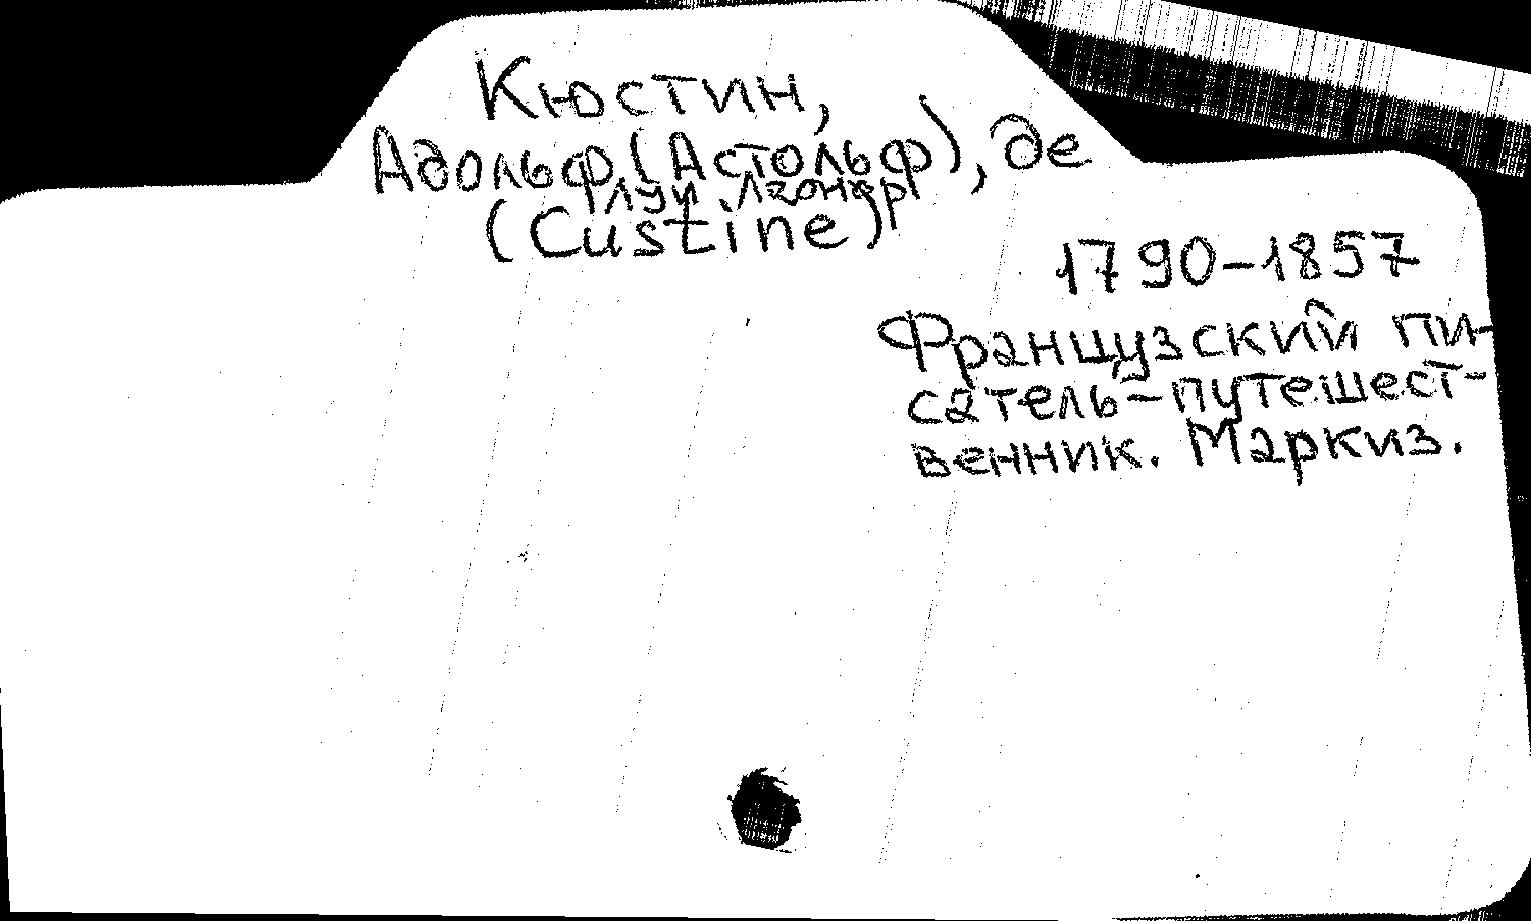 Кюстин,
Адольф (Астольф), де
луи леонар
(Custine)
1790-1857
Французский пи-
сатель-путешест-
венник. Маркиз.